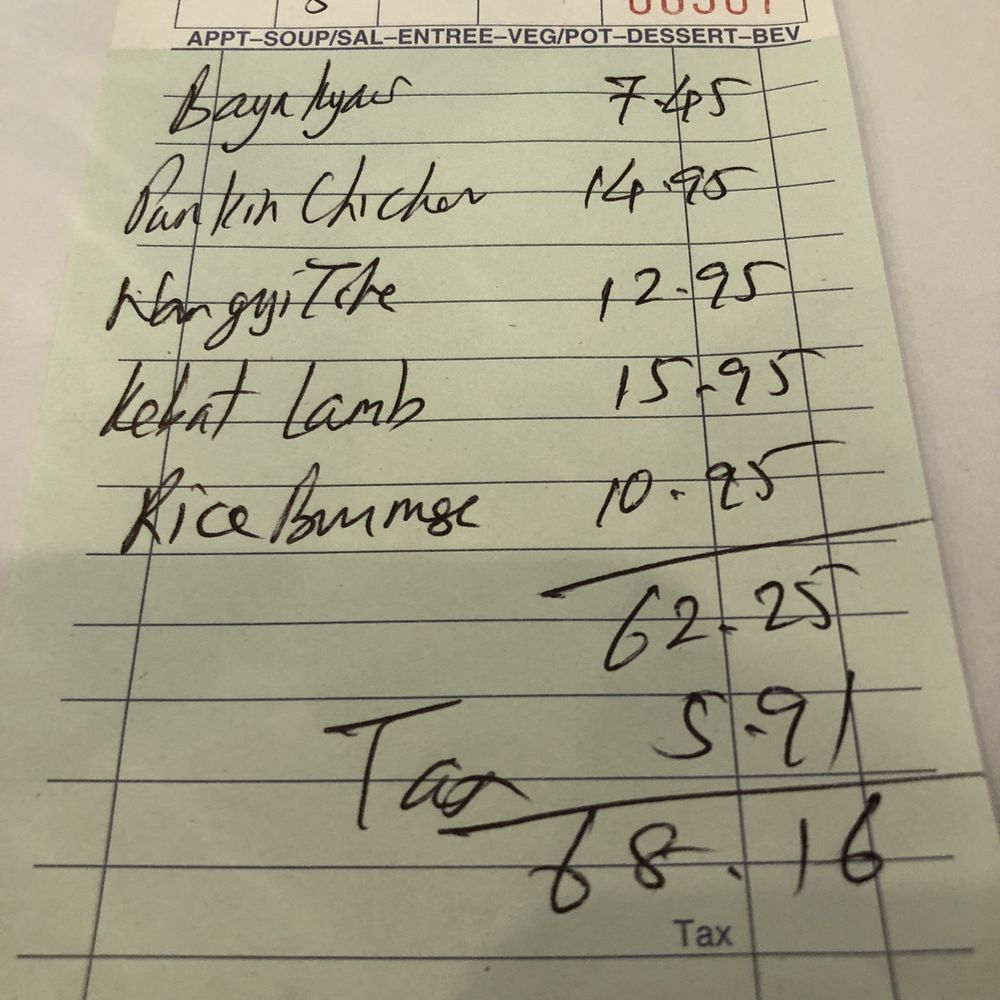 APPT–SOUP/SAL–ENTREE–VEG/POT–DESSERT–BEV
Baya kyaw 7.45
Pankin Chicken 14.95
Nangyi Toke 12.95
Kebat Lamb 15.95
Rice 10.95
62.25
Tax 5.91
68.16
Tax